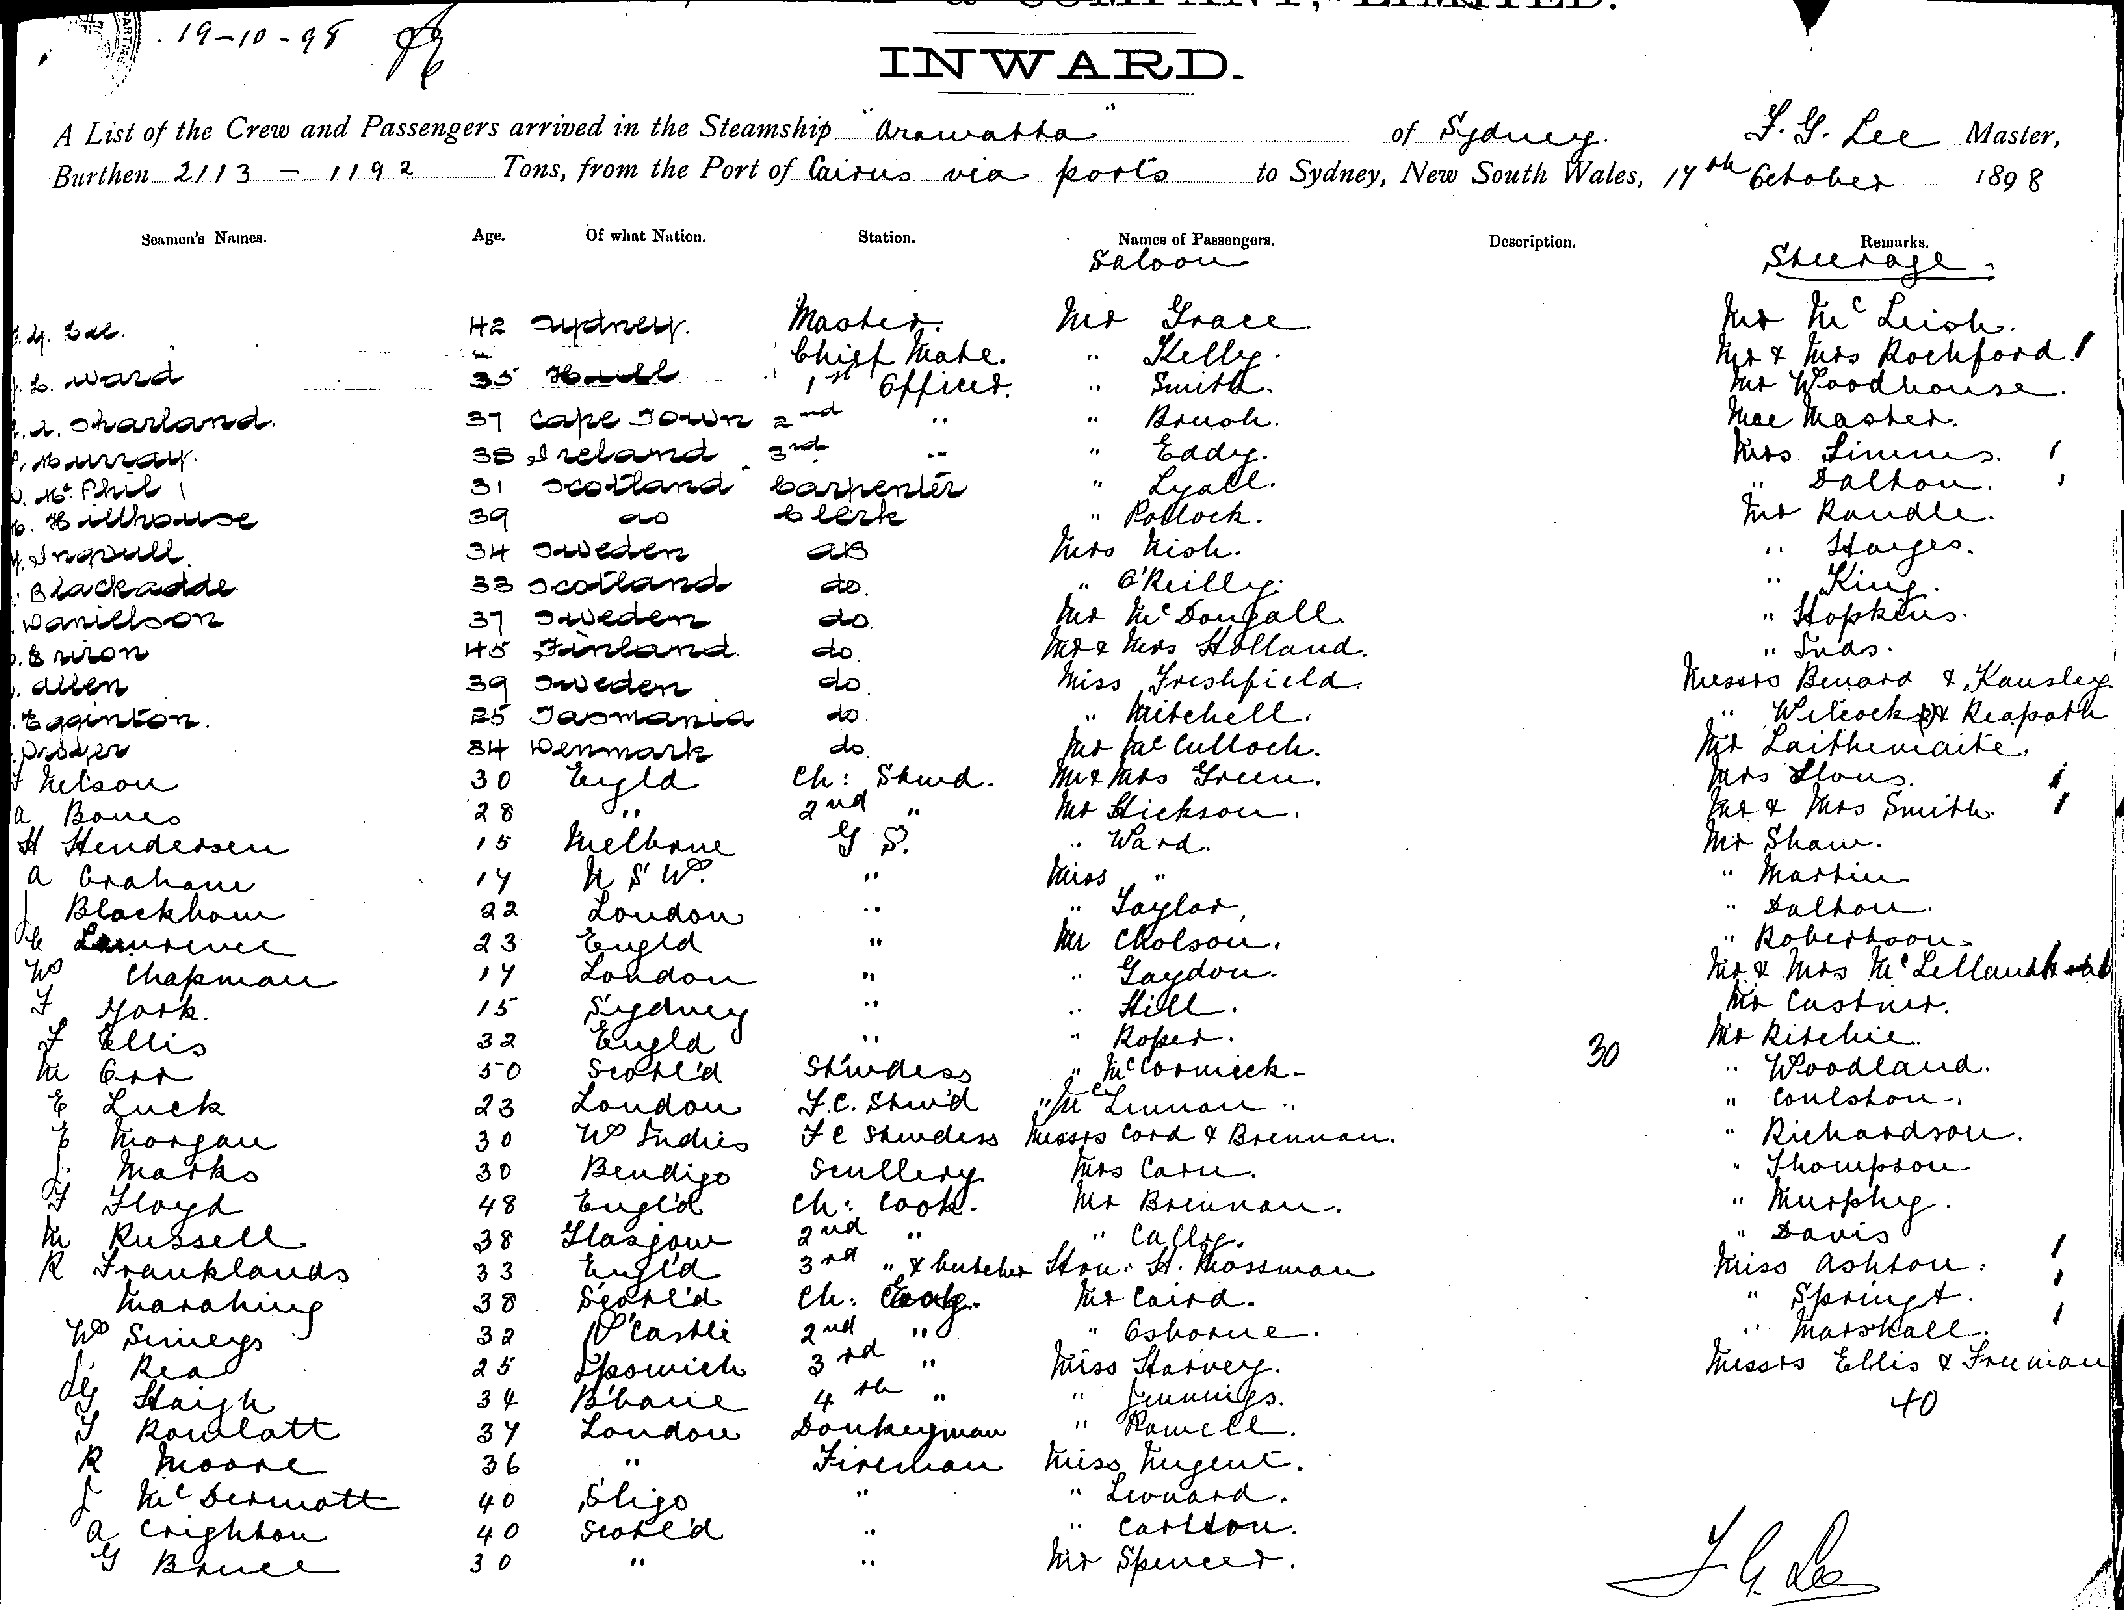 & COMPANY, LIMITED.
19-10-98
INWARD.
A List of the Crew and Passengers arrived in the Steamship "Arawatta" of Sydney. F. G. Lee Master,
Burthen 2113 - 1192 Tons, from the Port of Cairns via ports to Sydney, New South Wales, 17th October 1898
Seamen's Names. Age. Of what Nation. Station. Names of Passengers. Description. Remarks.
Saloon Steerage.
G. Lee. 42 Sydney. Master. Mr Grace Mr McLeish.
Chief Mate. " Kelly. Mr & Mrs Rochford 1
Ward 35 Hull 1st Officer. " Smith. Mr Woodhouse.
Sharland. 37 Cape Town 2nd " " Brush. Mac Master.
Murray. 38 Ireland 3rd " " Eddy. Mrs Simms. 1
McPhil 31 Scotland Carpenter " Lyall. " Dalton. 1
Hillhouse 39 do Clerk " Pollock. Mr Randle.
34 Sweden AB Mrs Nish. " Harges.
Blackadde 33 Scotland do. " O'Reilly. " King.
Danielson 37 Sweden do. Mr McDougall. " Hopkins.
45 Finland do. Mr & Mrs Holland.
Allen 39 Sweden do. Miss Freshfield. Messrs Benard & Kansley
Egginton. 25 Tasmania do. " Mitchell. " Wilcock & Reapath
34 Denmark do. Mr McCulloch. Mr Laithwaite.
Nelson 30 Engld Ch: Stwd. Mr & Mrs Green. Mrs 1
A Bones 28 " 2nd " Mr Hickson. Mr & Mrs Smith. 1
H Hendersen 15 Melbrne G S. " Ward. Mr Shaw.
A Graham 17 N S W. " Miss " " Martin
J Blackham 22 London " " Taylor, " Dalton.
C Lawrence 23 Engld " Mr Cholson. " Robertson.
W Chapman 17 London " " Gaydon. Mr & Mrs McLelland
F York. 15 Sydney " " Hill. Mr Castner.
F Ellis 32 Engld " " Roper. Mr Ritchie.
M Orr 50 Scotl'd Stwdess " McCormick - 30 " Woodland.
E Luck 23 London F.C. Stw'd " McLennan " " Coulston.
E Morgan 30 W Indies F C Stwdess Messrs Cord & Brennan. " Richardson.
J. Marks 30 Bendigo Scullery Mrs Carn. " Thompson
F Floyd 48 Engl'd Ch: Cook. Mr Brennan. " Murphy.
M Russell 38 Glasgow 2nd " " Cally. " Davis
R Franklands 33 Engl'd 3rd " & butcher Hon. H. Mossman Miss Ashton. 1
38 Scotl'd Ch: Eng. Mr Caird. " Springt. 1
W Simeys 32 N'Castle 2nd " " Osborne. " Marshall. 1
J. Rea 25 Ipswich 3rd " Miss Harvey. Messrs Ellis & Freeman
G Haigh 34 B'bane 4th " " Jennings. 40
T Rowlatt 37 London Donkeyman " Rowell.
R Moore 36 " Fireman Miss Nugent.
J McDermott 40 Sligo " " Leonard.
A Crighton 40 Scotl'd " " Carlton.
G Bruce 30 " " Mr Spencer.
F G Lee